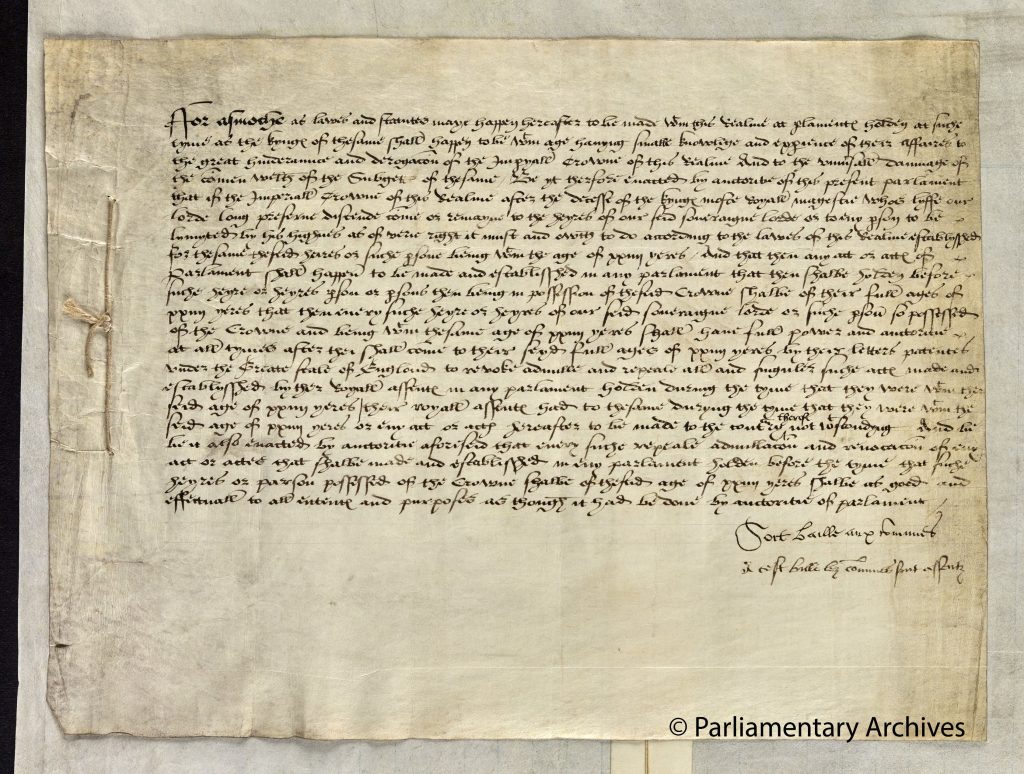 For asmoche as lawes and statutes maye happen hereafter to be made wtin this Realme at pliamentes holden at suche
tyme as the kynges of the same shall happen to be wtin age havyng smalle knowlege and expience of their affaires to
the great hinderaunce and derogacon of the Impyall Crowne of this Realme And to the damage of
the comen welth of the Subgettes of the same / Be yt therfore enacted by auctorite of this present parliament
that if the Imperiall Crowne of this Realme after the decesse of the kynges moste Royall magestie whos lyffe our
lorde long preserve discende come or remayne to the heyres of our seid soveraigne lorde or to eny pson to be
lymyted by his highnes as of verie right it must and owith to do according to the lawes of this Realme establisshed
for the same the seid heires or suche psone being wtin the age of xxiiij yeres / And that then any act or actes of
Parliament shall happen to be made and establisshed in any parliament that then shalbe holden before
suche heyre or heyres pson or psons then being in possession of the seid Crowne shalbe of their full ages of
xxiiij yeres that then every suche heyre or heyres of our seid soveraigne lorde or suche pson so possessed
of the Crowne and being wtin the same age of xxiiij yeres shall have full power and auctorite
at all tymes after they shall come to their seyd full ages of xxiiij yeres by their letters patentes
under the Greate seale of England to revoke adnulle and repeale all and singuler suche actes made and
establysshed by ther Royall assentes in any parliament holden during the tyme that they were wtin ther
seid age of xxiiij yeres their royall assentes had to the same duryng the tyme that they were wtin the
seid age of xxiiij yeres or eny act or actes hereafter to be made to the contrie therof not wtstondyng And be
be it also enacted by auctoritie aforeseid that every suche repeale adnullacon and revocacon of eny
act or actes that shalbe made and establisshed in eny parliament holden before the tyme that suche
heyres or parson possessed of the Crowne shalbe of the seid age of xxiiij yeres shalbe as good and
effectuall to all ententes and purposes as though it had be done by auctoritie of parliament
Soit baille aux comunes
A cest bille les comunes sont assentz
© Parliamentary Archives